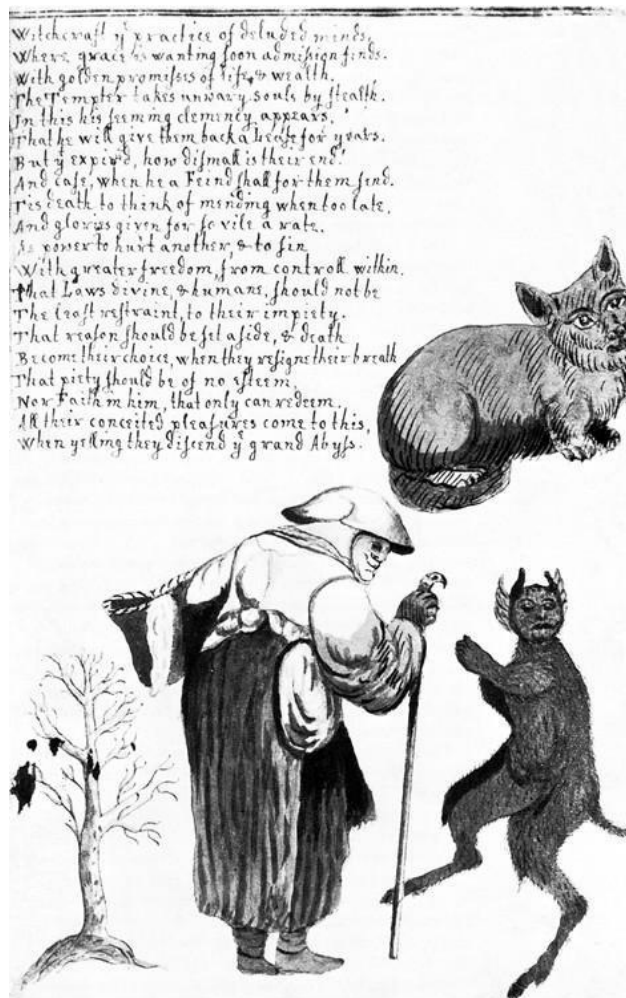 Witchcraft yͤ practice of deluded minds,
Where grace is wanting soon admission finds.
With golden promises of life, & wealth,
The Tempter takes unwary souls by stealth.
In this his seeming clemency appears,
That he will give them back a Lease for years.
But yͭ expir'd, how dismall is their end!
And case, when he a Feind shall for them send.
Tis death to think of mending when too late,
And glories given for so vile a rate.
As power to hurt another, & to sin
With greater freedom, from controll within.
That Laws divine, & humane, should not be
The least restraint, to their impiety.
That reason should be set aside, & death
Become their choice, when they resigne their breath
That piety should be of no esteem,
Nor Faith in him, that only can redeem.
All their conceited pleasures come to this,
When yelling they discend yͤ grand Abyss.